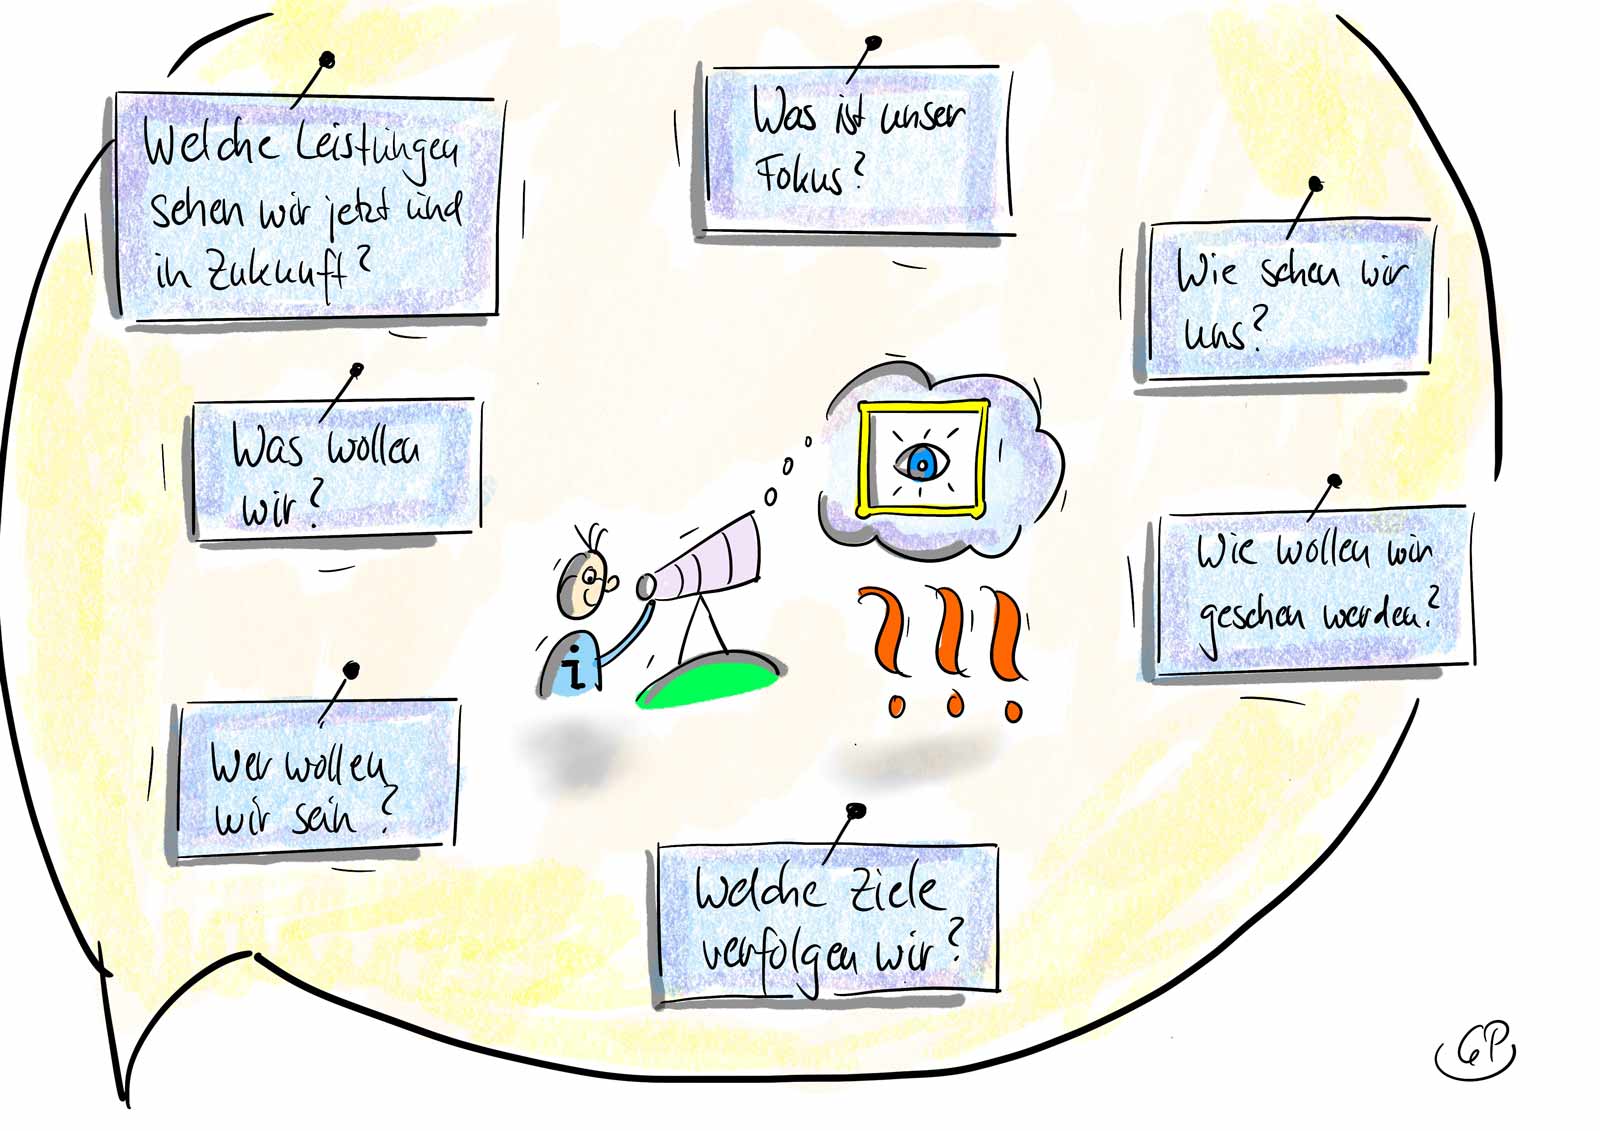 Welche Leistungen
sehen wir jetzt und
in Zukunft?
Was ist unser
Fokus?
Wie sehen wir
uns?
Was wollen
wir?
Wie wollen wir
gesehen werden?
i
!!!
Wer wollen
wir sein?
Welche Ziele
verfolgen wir?
GP